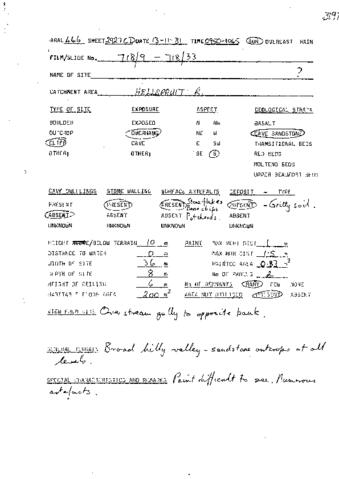 3191
AREA L66 SHEET 2927CD DATE 13-11-81 TIME 0950-1065 SUN OVERCAST RAIN
FILM/SLIDE No. 718/9 - 718/33
NAME OF SITE ?
CATCHMENT AREA HELLSPRUIT R.
TYPE OF SITE EXPOSURE ASPECT GEOLOGICAL STRATA
BOULDER EXPOSED N NW BASALT
OUTCROP OVERHANG NE W CAVE SANDSTONE
CLIFF CAVE E SW TRANSITIONAL BEDS
OTHER: OTHER: SE S RED BEDS
MOLTENO BEDS
UPPER BEAUFORT BEDS
CAVE DWELLINGS STONE WALLING SURFACE ARTEFACTS DEPOSIT - TYPE
PRESENT PRESENT PRESENT Stone flakes Bone chips PRESENT - Gritty soil.
ABSENT ABSENT ABSENT Potsherds. ABSENT
UNKNOWN UNKNOWN UNKNOWN UNKNOWN
HEIGHT ABOVE/BELOW TERRAIN 10 m PAINT MAX VERT DIST 1 m
DISTANCE TO WATER 0 m MAX HOR DIST 1.5 m
WIDTH OF SITE 36 m PAINTED AREA 0.83 m²
DEPTH OF SITE 8 m No OF PANELS 2
HEIGHT OF CEILING 6 m No OF REMNANTS MANY FEW NONE
HABITABLE FLOOR AREA 200 m² AREA NOT UTILISED ABSENT
VIEW FROM SITE Over stream gully to opposite bank.
GENERAL TERRAIN Broad hilly valley - sandstone outcrops at all
levels.
SPECIAL CHARACTERISTICS AND REMARKS Paint difficult to see. Numerous
artefacts.